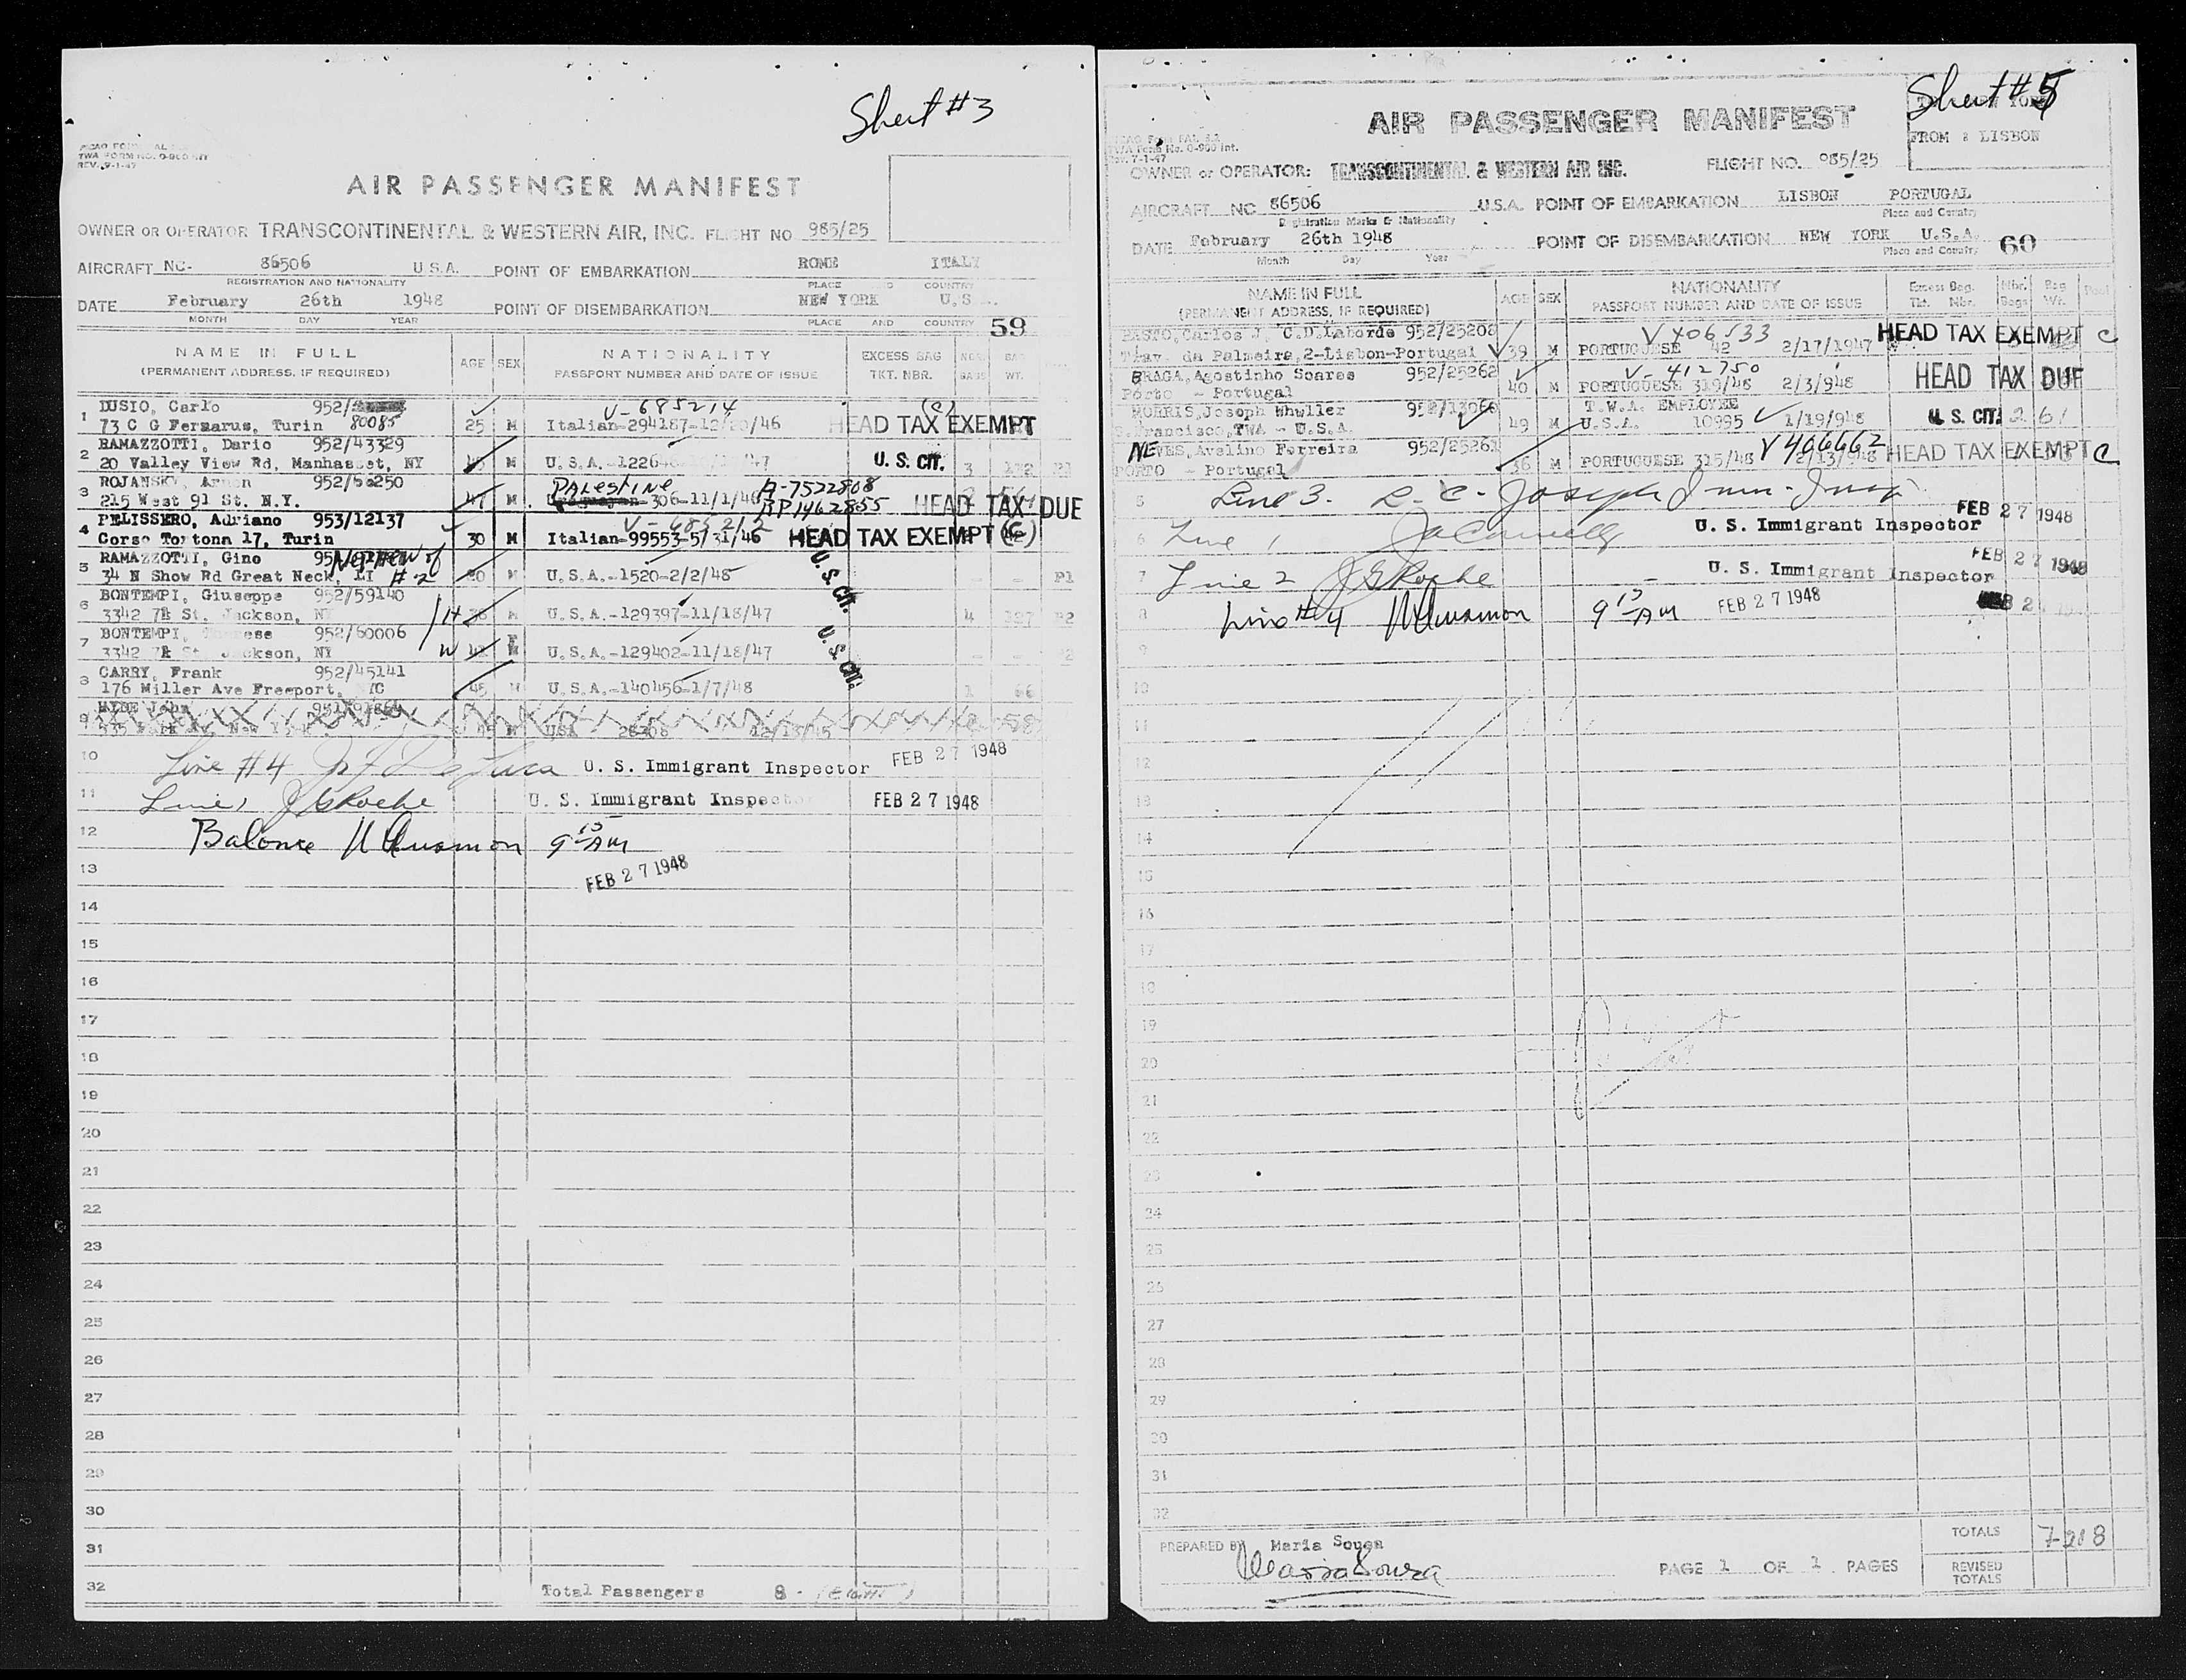 Sheet #3
TWA FORM NO. O-960 INT
REV. 9-1-47
AIR PASSENGER MANIFEST
OWNER OR OPERATOR TRANSCONTINENTAL & WESTERN AIR, INC. FLIGHT NO 985/25
AIRCRAFT NC- 86506 U.S.A. POINT OF EMBARKATION ROME ITALY
REGISTRATION AND NATIONALITY PLACE COUNTRY
DATE February 26th 1948 POINT OF DISEMBARKATION NEW YORK U.S.
MONTH DAY YEAR PLACE AND COUNTRY 59
NAME IN FULL AGE SEX NATIONALITY EXCESS BAG
(PERMANENT ADDRESS, IF REQUIRED) PASSPORT NUMBER AND DATE OF ISSUE TKT. NBR. BAGS WT.
DUSIO, Carlo 952/ V-685214 (C)
1 73 C G Ferrarus, Turin 80085 25 M Italian-294187-12/ /46 HEAD TAX EXEMPT
RAMAZZOTTI, Dario 952/43329
2 20 Valley View Rd, Manhasset, NY M U.S.A.-12264 47 U.S. CIT. 3 132 P1
ROJANSKY, Arnon 952/56250 PALESTINE A-7522808
3 215 West 91 St. N.Y. 47 M 306-11/1/46 RP1462855 HEAD TAX DUE
PELISSERO, Adriano 953/12137 V-685212
4 Corso Tortona 17, Turin 30 M Italian-99553-5/31/46 HEAD TAX EXEMPT (C)
RAMAZZOTTI, Gino Nephew of
5 34 N Show Rd Great Neck, LI #2 20 M U.S.A.-1520-2/2/48 U.S. CIT. P1
BONTEMPI, Giuseppe 952/59140
6 3342 7 St. Jackson, N H M U.S.A.-129397-11/18/47 4 P2
BONTEMPI, 952/60006
7 3342 7 St. Jackson, NY W F U.S.A.-129402-11/18/47 U.S. CIT.
CARRY, Frank 952/45141
8 176 Miller Ave Freeport, 45 M U.S.A.-140456-1/7/48 1 66
9 USA
10 Line #4 De Luca U. S. Immigrant Inspector FEB 27 1948
11 Line 1 J G Roche U. S. Immigrant Inspector FEB 27 1948
12 Balance 9 15 AM
13 FEB 27 1948
14
15
16
17
18
19
20
21
22
23
24
25
26
27
28
29
30
31
32 Total Passengers 8 -
Sheet #5
AIR PASSENGER MANIFEST
FROM : LISBON
Rev. 7-1-47
OWNER or OPERATOR: TRANSCONTINENTAL & WESTERN AIR INC. FLIGHT NO. 985/25
AIRCRAFT NC 86506 U.S.A. POINT OF EMBARKATION LISBON PORTUGAL
Registration Marks & Nationality Place and Country
DATE February 26th 1948 POINT OF DISEMBARKATION NEW YORK U.S.A. 60
Month Day Year Place and Country
NAME IN FULL AGE SEX NATIONALITY Excess Bag. Nbr. Bag
(PERMANENT ADDRESS, IF REQUIRED) PASSPORT NUMBER AND DATE OF ISSUE Tkt. Nbr. Bags Wt.
BASTO, Carlos J. C.D.Laborde 952/25208 V406533
Trav. da Palmeira, 2-Lisbon-Portugal 39 M PORTUGUESE 42 2/17/1947 HEAD TAX EXEMPT C
BRAGA, Agostinho Soares 952/25262 V-412750
Porto - Portugal 40 M PORTUGUESE 319/48 2/3/948 HEAD TAX DUE
MORRIS, Joseph Whwller 952/13066 T.W.A. EMPLOYEE
S.Francisco, TWA - U.S.A. 49 M U.S.A. 10995 1/19/948 U.S. CIT. 2 61
NEVES, Avelino Ferreira 952/25261 V406662
PORTO - Portugal 36 M PORTUGUESE 315/48 2/13/948 HEAD TAX EXEMPT C
5 Line 3. Joseph
FEB 27 1948
6 Line 1 U. S. Immigrant Inspector
FEB 27 1948
7 Line 2 J G Roche U. S. Immigrant Inspector
8 Line #4 9 15 AM FEB 27 1948
9
10
11
12
13
14
15
16
17
18
19
20
21
22
23
24
25
26
27
28
29
30
31
32
PREPARED BY Maria Sousa TOTALS 7-208
Maria Souza PAGE 1 OF 1 PAGES REVISED TOTALS